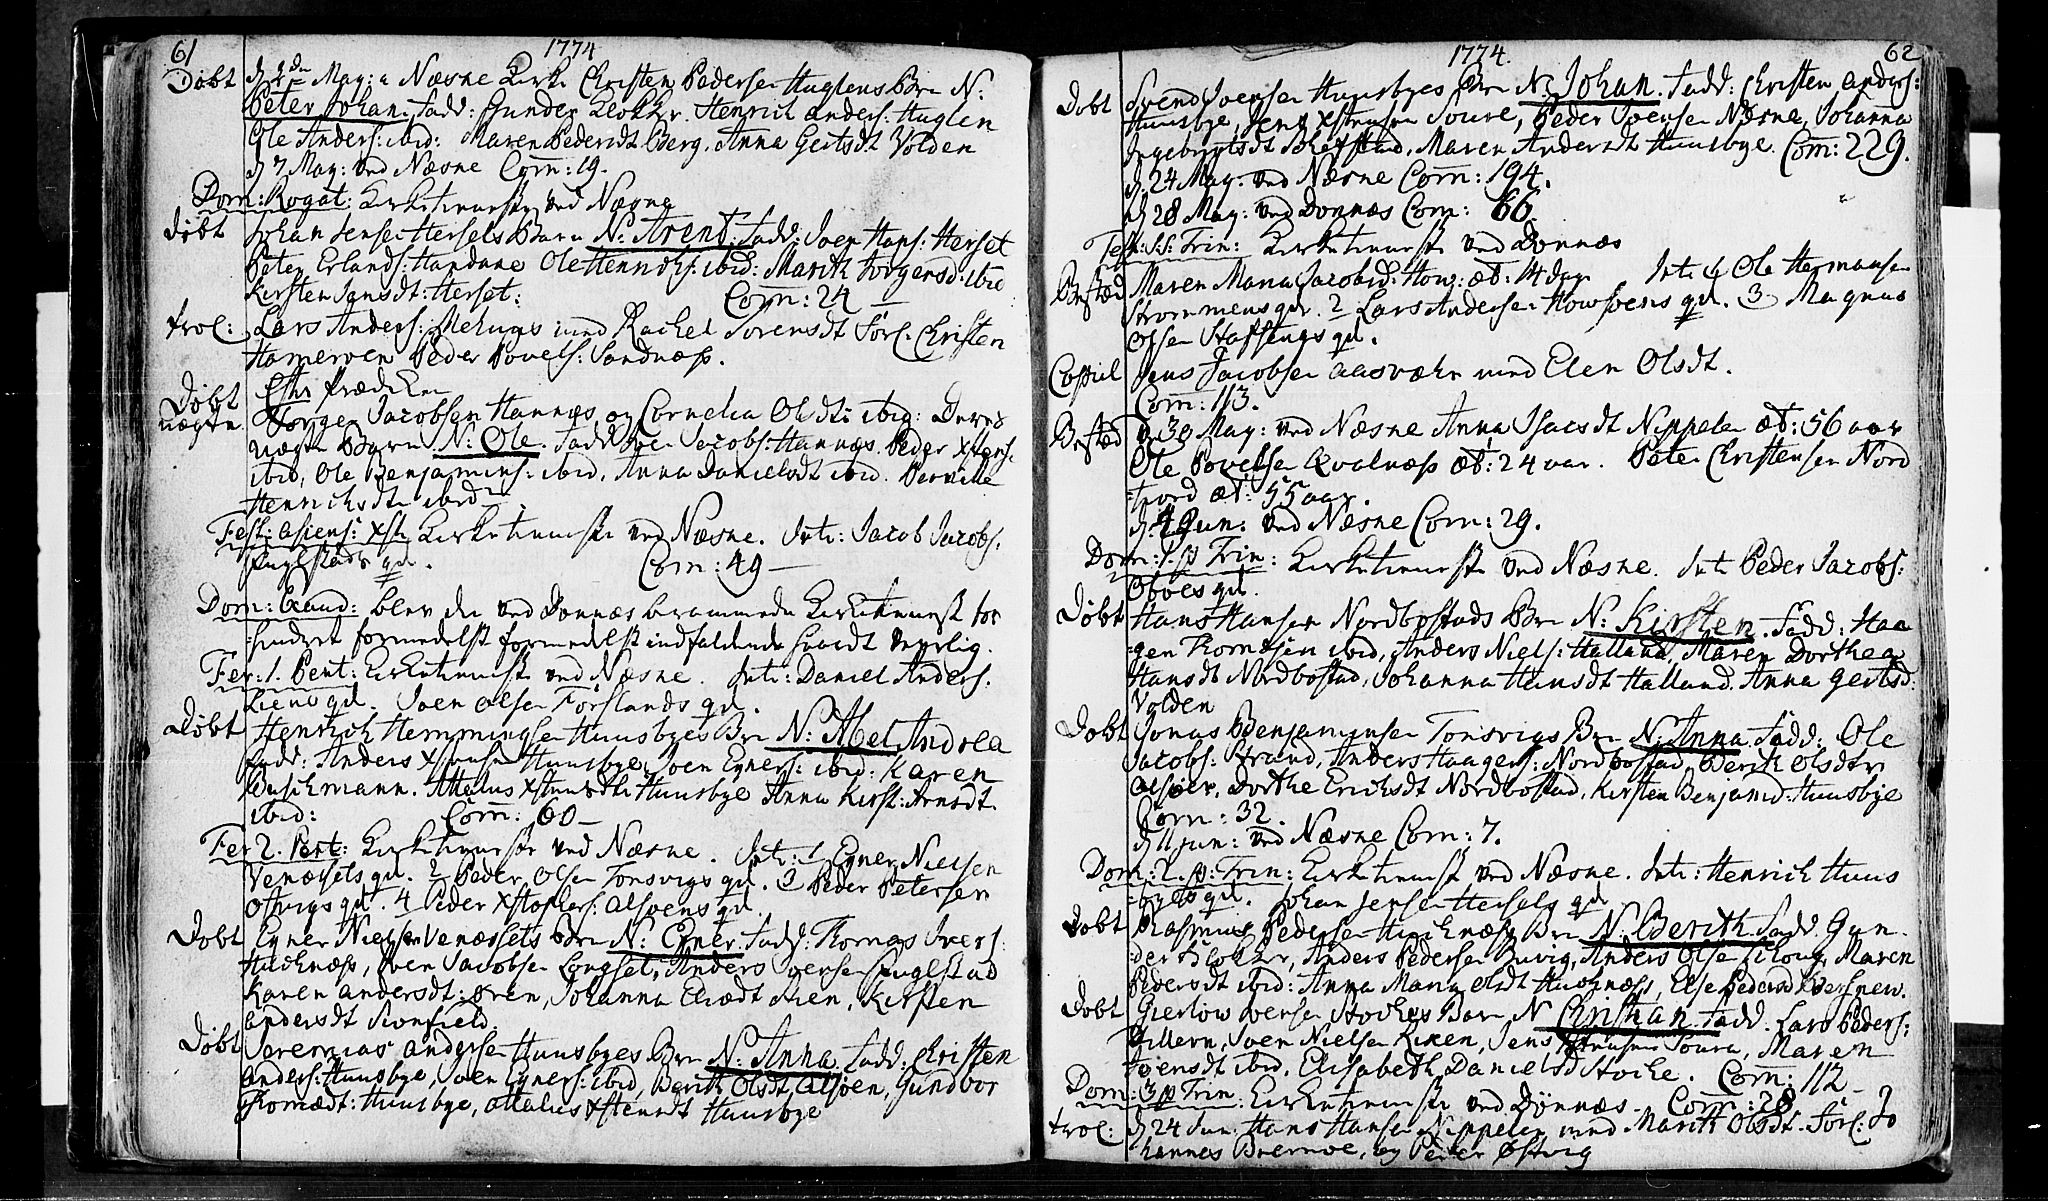 61
1774
Døbt d. 1den May: a Næsne Kirke Christen Pedersen Huglens Barn N:
Peter Johan. Fadd: Gunder Klokker. Henrich Anders: Huglen
Ole Anders: ibid: Maren Pedersdt Berg. Anna Gertsdt Volden
d 7 May: ved Næsne Com: 19.
Dom: Rogat: Kirketieneste ved Næsne
døbt Johan Jensen Hersets Barn N: Arent: Fadd: Joen Hans: Herset
Peter Erlands: Handnæ Ole Henrichs: ibid: Marith Jørgensd: ibid
Kirsten Jensdt: Herset: Com: 24 —
trol: Lars Anders: Mehuges med Rachel Sørensdt Forl: Christen
Hamernen Peder Povels: Sandnæss.
Efter Prædiken
Døbt uægte Jørgen Jacobsen Hannæs og Cornelia Olsdt: ibid: Deres
uægte Barn N: Ole. Fadd Joen Jacobs: Hannæs Peder Xstens:
ibid, Ole Benjamins: ibid, Anna Danielsdt ibid. Pernille
Henrichsdt ibid
Fest: Asiens: Xsti Kirketieneste ved Næsne. Intr: Jacob Jacobs.
Fuglstads qd. Com: 49 —
Dom: Exaud: blev den ved Dønnæs berammede Kirketieneste for
hindret formedelst formedelst indfaldende haardt Veyrlig.
Fer: 1. Pent: Kirketieneste ved Næsne. Intr: Daniel Anders:
Liens qd. Joen Olsen Forslands qd.
Døbt Henrich Hemmingsen Huusbyes Barn N: Abel Andrea
Fadd: Anders Xstensen Huusbye, Joen Egners: ibid: Karen
Buschmann. Attalus Xstensdt Huusbye Anna Kirst: Arnsdt
ibid: Com: 60 —
Fer 2. Pent: Kirketieneste ved Næsne. Intr: 1 Egner Nielsen
Venæssets qd. 2 Peder Olsen Tonsvigs qd. 3 Peder Petersen
Ostvigs qd. 4 Peder Xstophers: Alsøens qd.
Døbt Egner Nielsen Venæssets Barn N: Egner. Fadd: Thomas Ivers:
Huchnæss, Iver Jacobsen Longset, Anders Joensen Fuglstad
Karen Andersdt: øren, Johanna Eliædt øren, Kirsten
Andersdt Sionfield
Døbt Jeremias Andersen Huusbyes Barn N: Anna. Fadd: Christen
Anders: Huusbye, Joen Egners: ibid, Berith Olsdt Alsøen, Gundbor
Thomædt: Huusbye, Attalus Xstensdt Huusbye
62
1774.
Døbt Svend Joensen Huusbyes Barn N: Johan. Fadd: Christen Anders:
Huusbye, Jens Xstensen Soure, Peder Joensen Næsne, Johanna
Ingebrigtsdt, Maren Andersdt Huusbye. Com: 229.
d. 24 May: ved Næsne Com: 194.
d 28 May: ved Dønnæs Com: 66.
Fest: S.S. Trin: Kirketieneste ved Dønnæs
Bested Maren Maria Jacobsd: How: æt: 14 dage Intr. 1 Ole Hermansen
Strømmens qd. 2 Lars Andersen Howsøens qd. 3 Magnus
Olsen Stafsengs qd.
Copul Jens Jacobsen Aasvæhr med Elen Olsdt.
Com: 113.
Bested d. 30 May: ved Næsne Anna Isacsdt Nippelen æt: 56 aar
Ole Povelsen Qvalnæss æt: 24 aar. Peter Christensen Nord
fiord æt: 55 aar.
d. 4 Jun: ved Næsne Com: 29.
Dom: 1. p Trin: Kirketieneste ved Næsne. Intr Peder Jacobs:
qd.
Døbt Hans Hansen Nordbostads Barn N: Kirsten. Fadd: Haa
gen Thomæsen ibid, Anders Niels: Halland, Maren Dorthea
Hansdt Nordbostad, Johanna Hansdt Halland, Anna Gertsd:
Volden
Døbt Jonas Benjaminsen Tonsvigs Barn N: Anna. Fadd: Ole
Jacobs: Strand, Anders Haagens: Nordbostad, Berith Olsdtr
Alsøen, Dorthe Erichsdt Nordbostad, Kirsten Benjamd: Huusbye
Com: 32.
d 11 Jun: ved Næsne Com: 7.
Dom: 2. p: Trin: Kirketieneste ved Næsne. Intr: Henrich Huus
byes qd. Johan Jensen Hersets qd
Døbt Rasmus Pedersen Huchnæss Barn N: Berith. Fadd Gun-
der Klokker, Anders Pedersen Buvig, Anders Olsen Liloug, Maren
Pedersdt ibid: Anna Maria Olsdt Huchnæss, Else Pedersd
Døbt Giertow Iversen Stoches Barn N Christian. Fadd. Lars Peders:
Dillern, Joen Nielsen Riken, Jens Xstensen Soura, Maren
Joensdt ibid, Elisabeth Danielsd Stoche. Com: 112 —
Dom: 3 p Trin: Kirketieneste ved Dønnæs. Com: 28
trol: d 24 Jun: Hans Hansen Nippelen med Marith Olsdt. Forl: Jo
hannes Bremnæ, og Peder Østvig